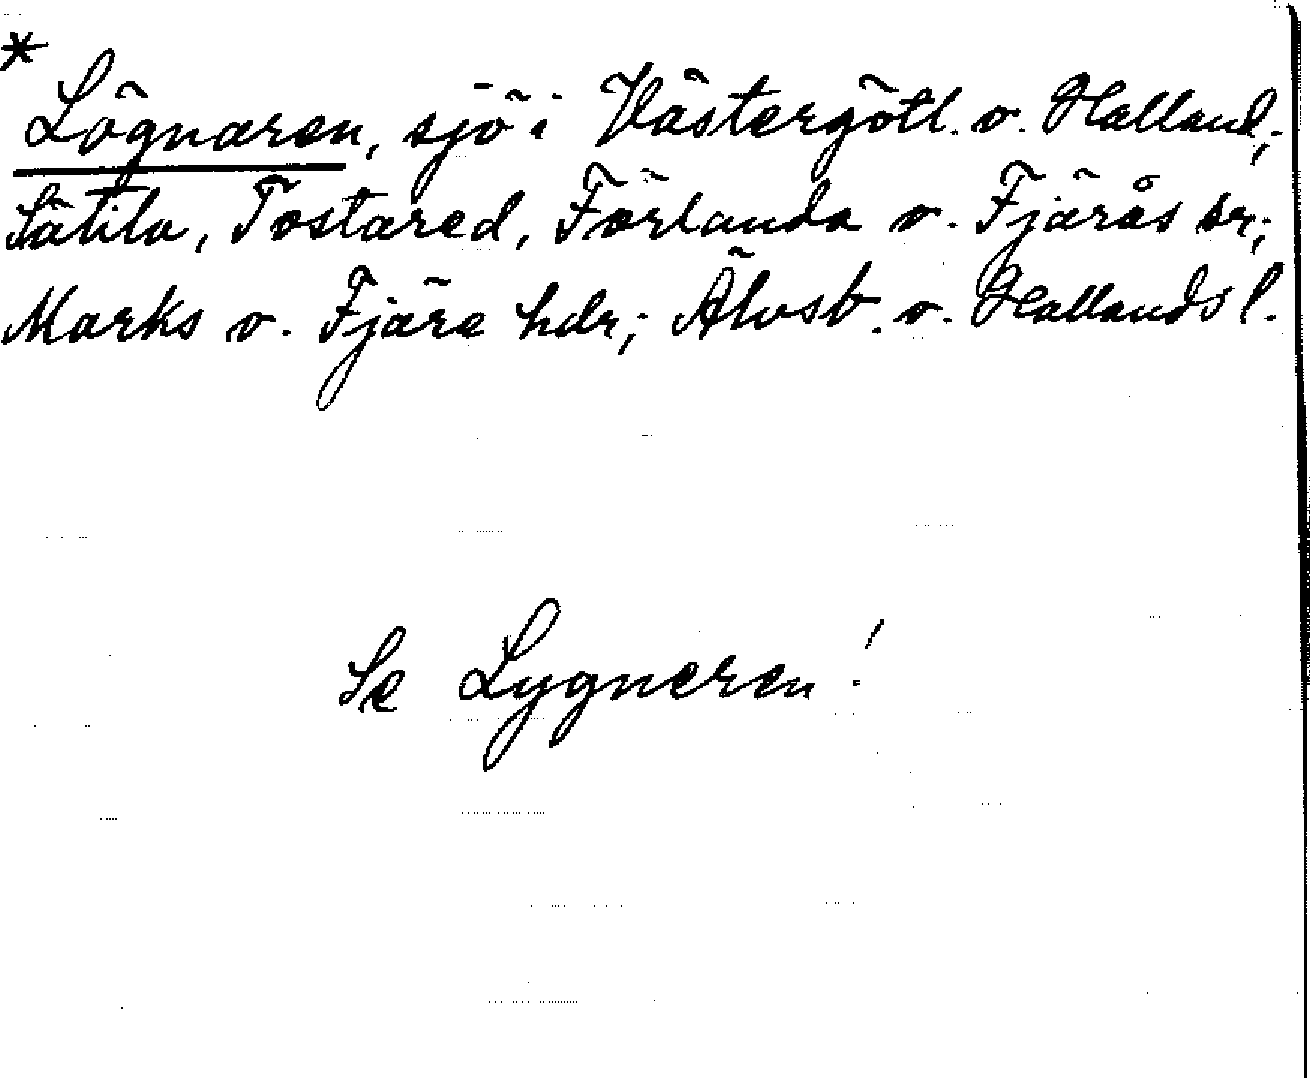 *
Lögnaren, sjö i Västergötl. o. Halland;
Sätila, Tostared, Förlanda o. Fjärås sr;
Marks o. Fjäre hdr; Älvsb. o. Hallands l.
Se Lygneren!